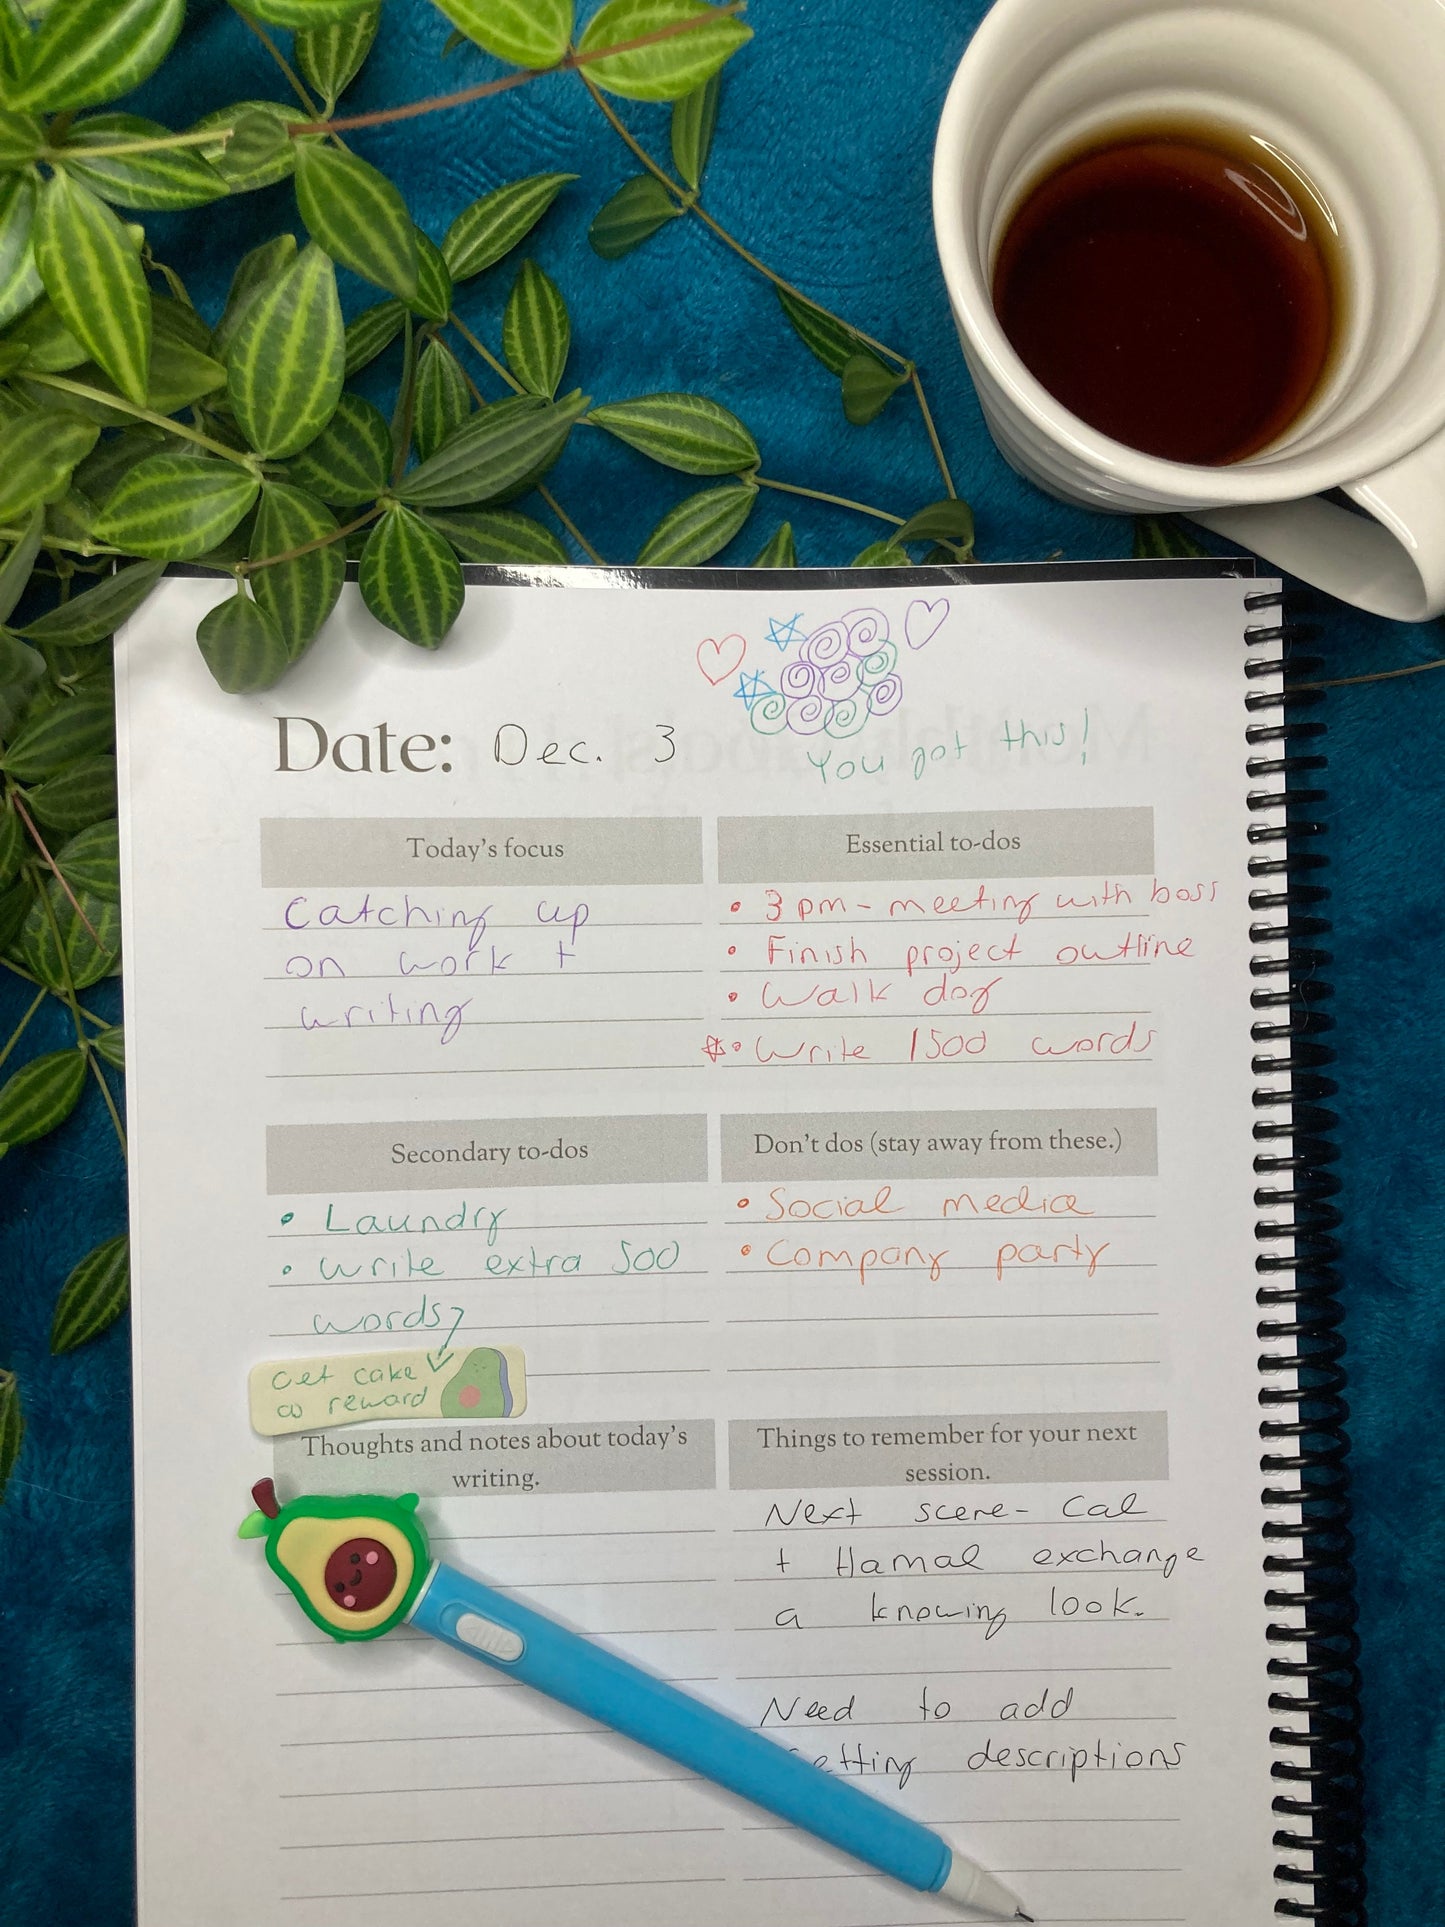 Date: Dec. 3
You got this!
Today's focus
Catching up
on work +
writing
Essential to-dos
• 3pm - meeting with boss
• Finish project outline
• Walk dog
• Write 1500 words
Secondary to-dos
• Laundry
• Write extra 500
words?
Get cake
as reward
Don't dos (stay away from these.)
• Social media
• Company party
Thoughts and notes about today's
writing.
Things to remember for your next
session.
Next scene - Cal
+ Hamal exchange
a knowing look.
Need to add
setting descriptions